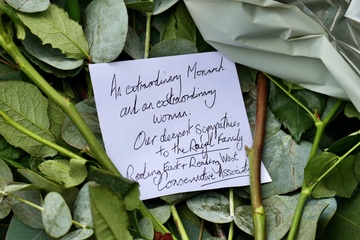 An extraordinary Monarch
and an extraordinary
woman.
Our deepest Sympathies
to the Royal Family
Reading East & Reading West
Conservative Associations